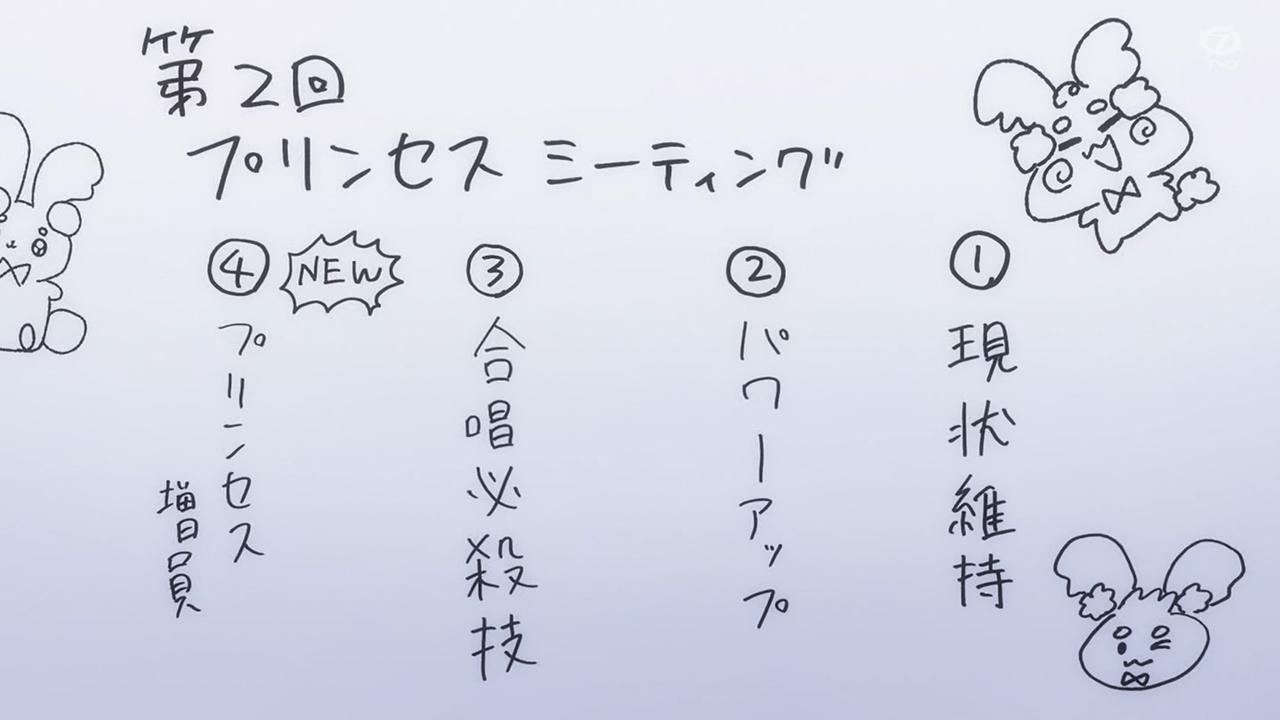 第2回
プリンセス ミーティング
①
現状維持
②
パワーアップ
③
合唱必殺技
④ NEW
プリンセス
増員